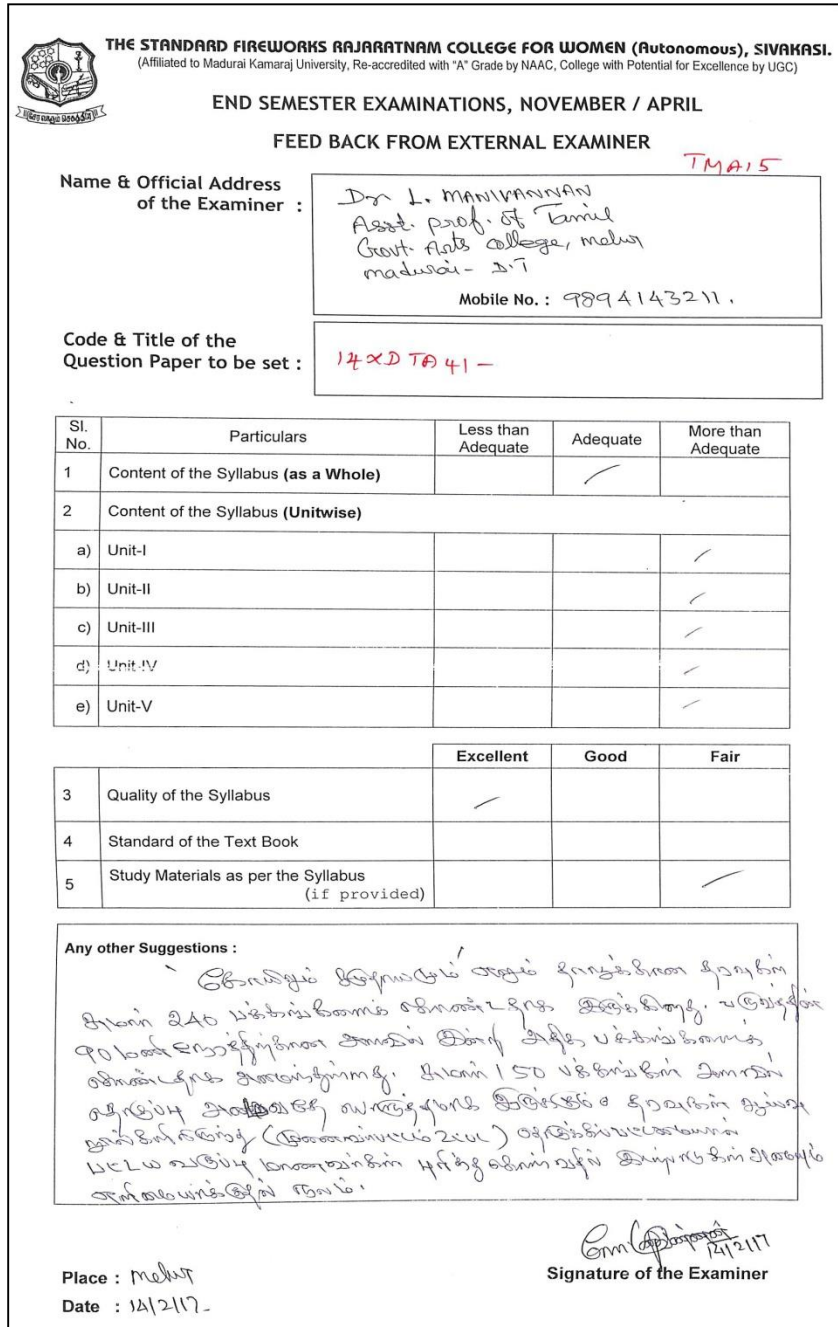 THE STANDARD FIREWORKS RAJARATNAM COLLEGE FOR WOMEN (Autonomous), SIVAKASI.
(Affiliated to Madurai Kamaraj University, Re-accredited with "A" Grade by NAAC, College with Potential for Excellence by UGC)
END SEMESTER EXAMINATIONS, NOVEMBER / APRIL
FEED BACK FROM EXTERNAL EXAMINER
TMA15
Name & Official Address of the Examiner :
Dr L. MANIVANNAN
Asst. prof. of Tamil
Govt. Arts college, melur
madurai - D.T
Mobile No. : 9894143211.
Code & Title of the Question Paper to be set :
14XDTA41 -
Sl. No. Particulars Less than Adequate Adequate More than Adequate
1 Content of the Syllabus (as a Whole)
2 Content of the Syllabus (Unitwise)
a) Unit-I
b) Unit-II
c) Unit-III
d) Unit-IV
e) Unit-V
Excellent Good Fair
3 Quality of the Syllabus
4 Standard of the Text Book
5 Study Materials as per the Syllabus (if provided)
Any other Suggestions :
கோயிலும் சமுதாயமும் எனும் தாளுக்கான தரவுகள்
சுமார் 240 பக்கங்களைக் கொண்டதாக இருக்கிறது. பருவத்தின்
90 மணி நேரத்திற்கான அளவில் இன்றி அதிக பக்கங்களைக்
கொண்டதாக அமைந்துள்ளது. சுமார் 150 பக்கங்கள் அளவில்
தரவுகள் ஆய்வு
நூல்களிலிருந்து
பட்டய வகுப்பு மாணவர்கள் புரிந்து கொள்வதில்
நலம்.
14/2/17
Signature of the Examiner
Place : melur
Date : 14/2/17-